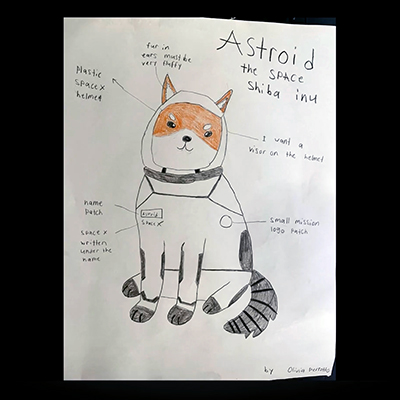 Astroid
the space
shiba inu
fur in
ears must be
very fluffy
Plastic
space x
helmet
I want a
visor on the helmet
name
patch
astroid
Space X
space x
written
under the
name
small mission
logo patch
by Olivia